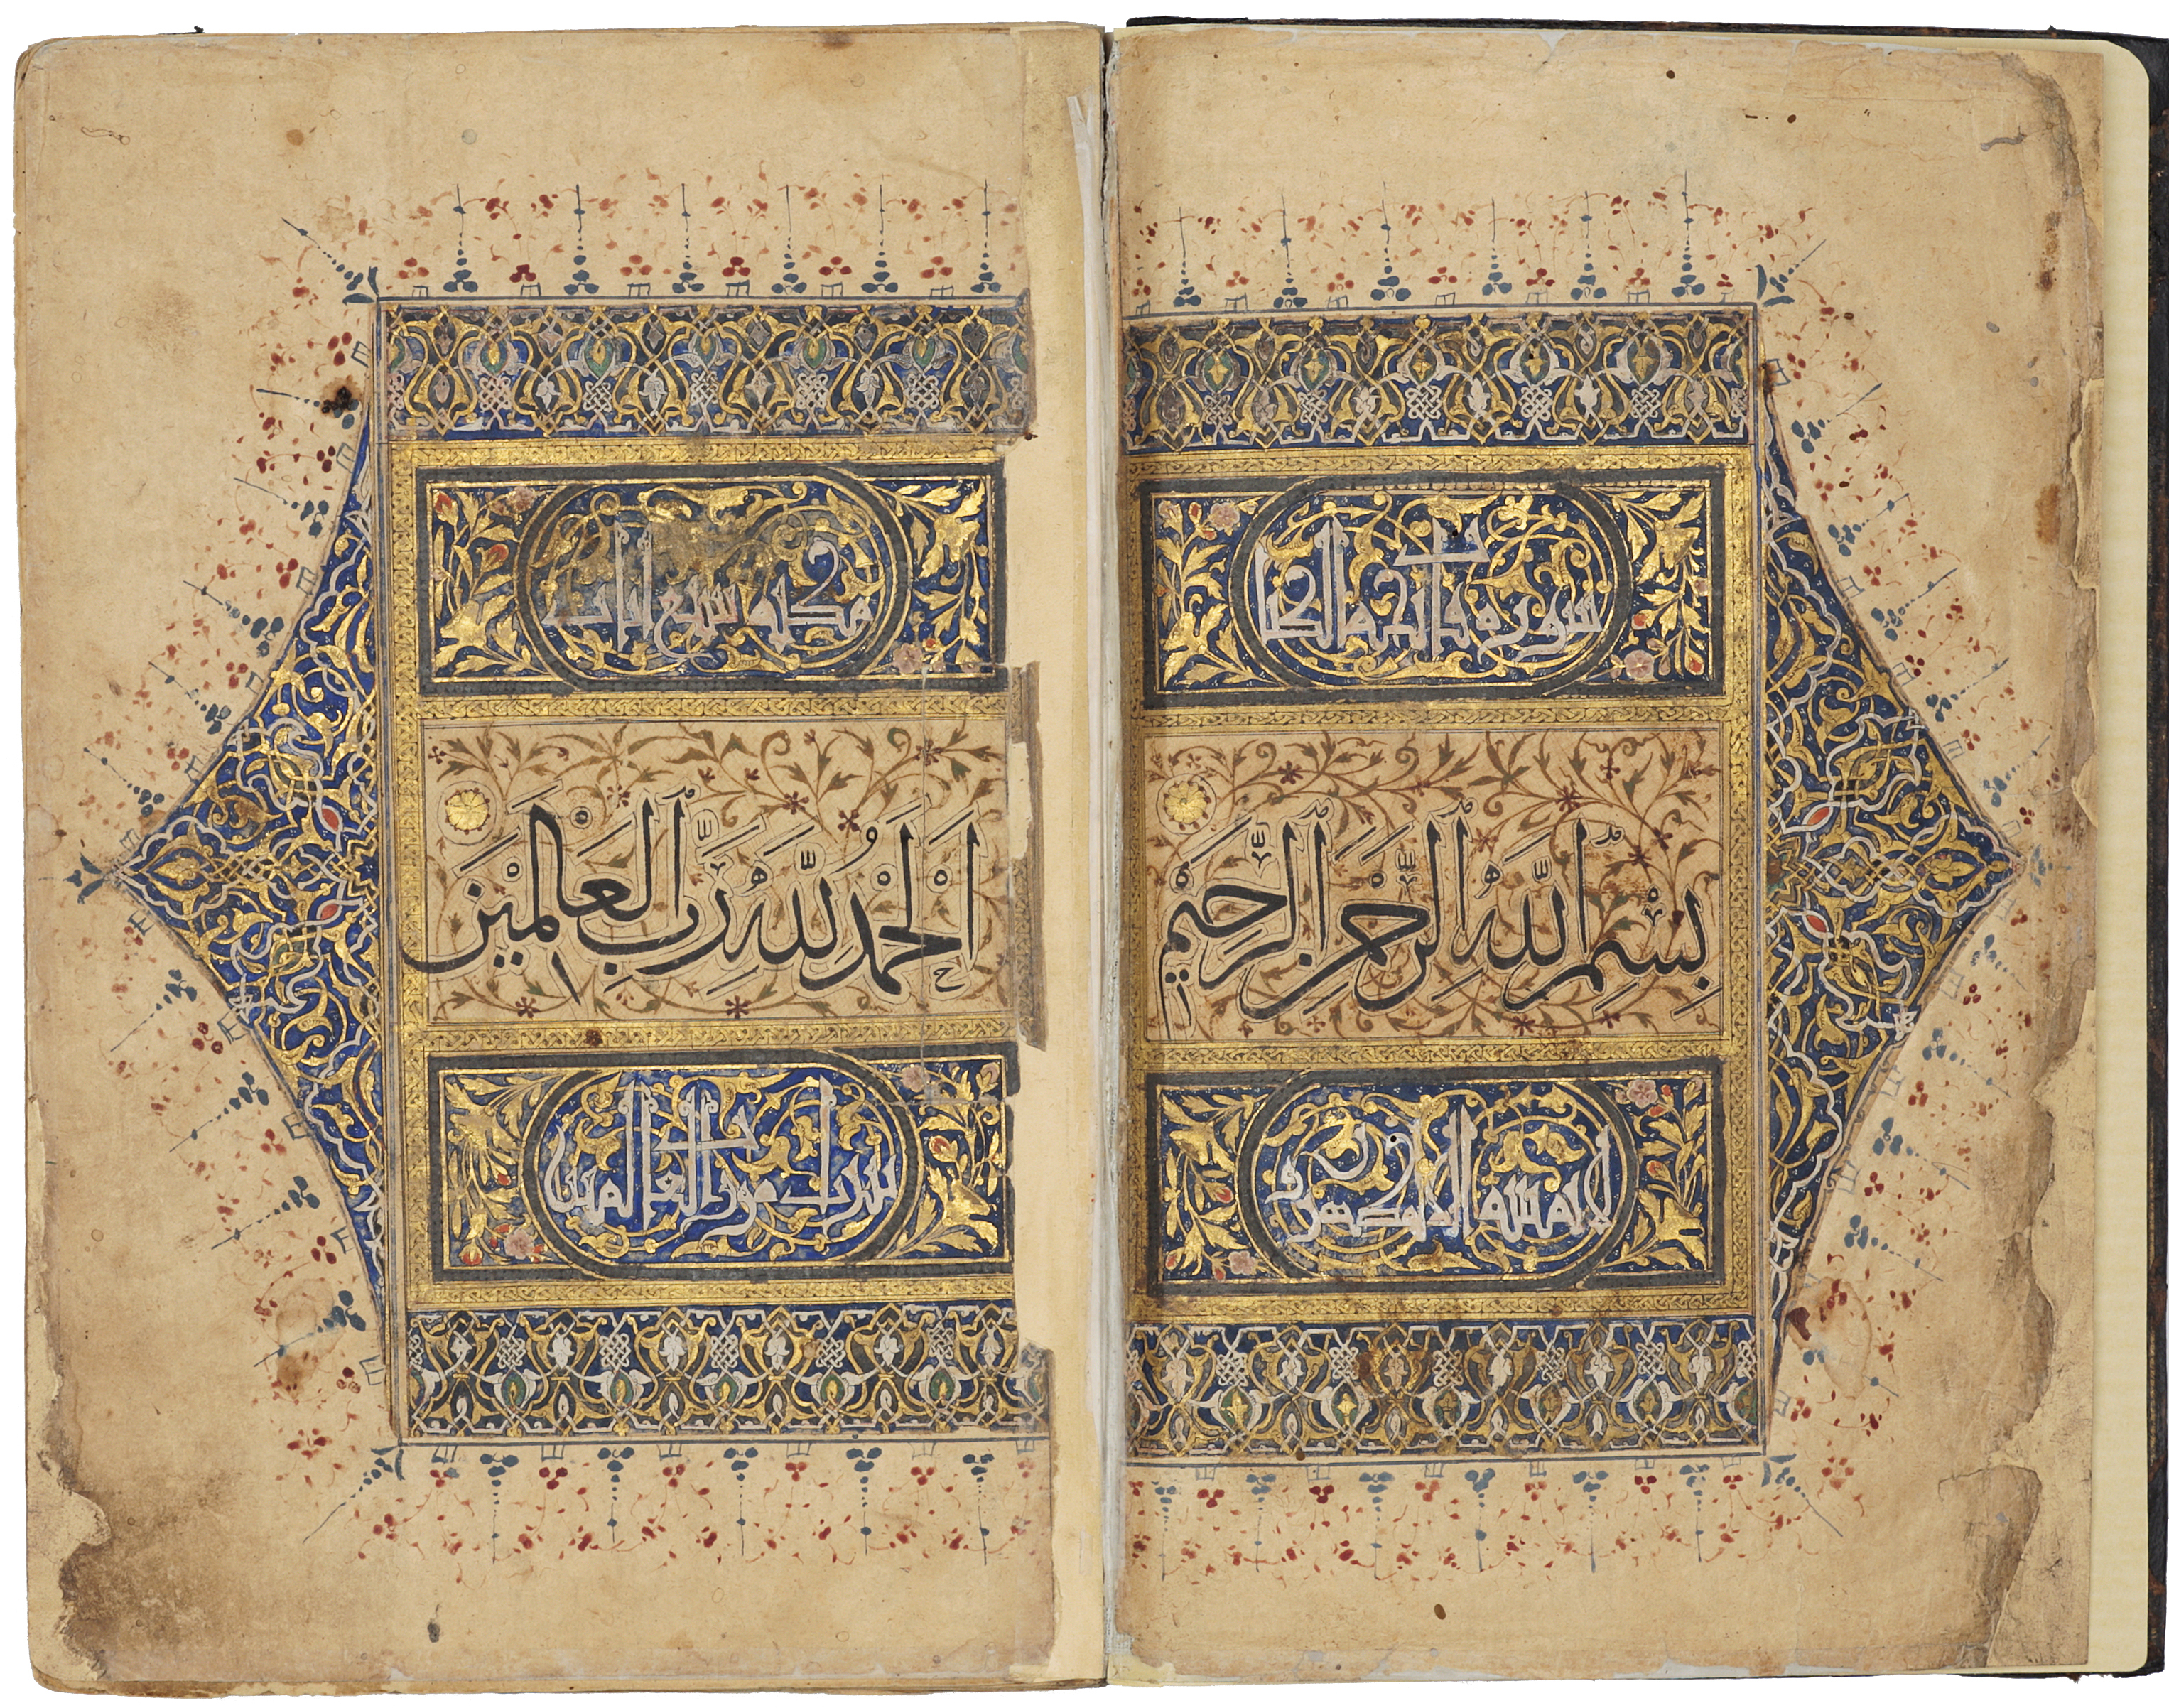 سورة فاتحة الكتاب
بِسْمِ اللَّهِ الرَّحْمَنِ الرَّحِيمِ
لا يمسه الا المطهرون
مكية سبع ايات
اَلْحَمْدُ لِلَّهِ رَبِّ الْعَالَمِيْنَ
تنزيل من رب العالمين